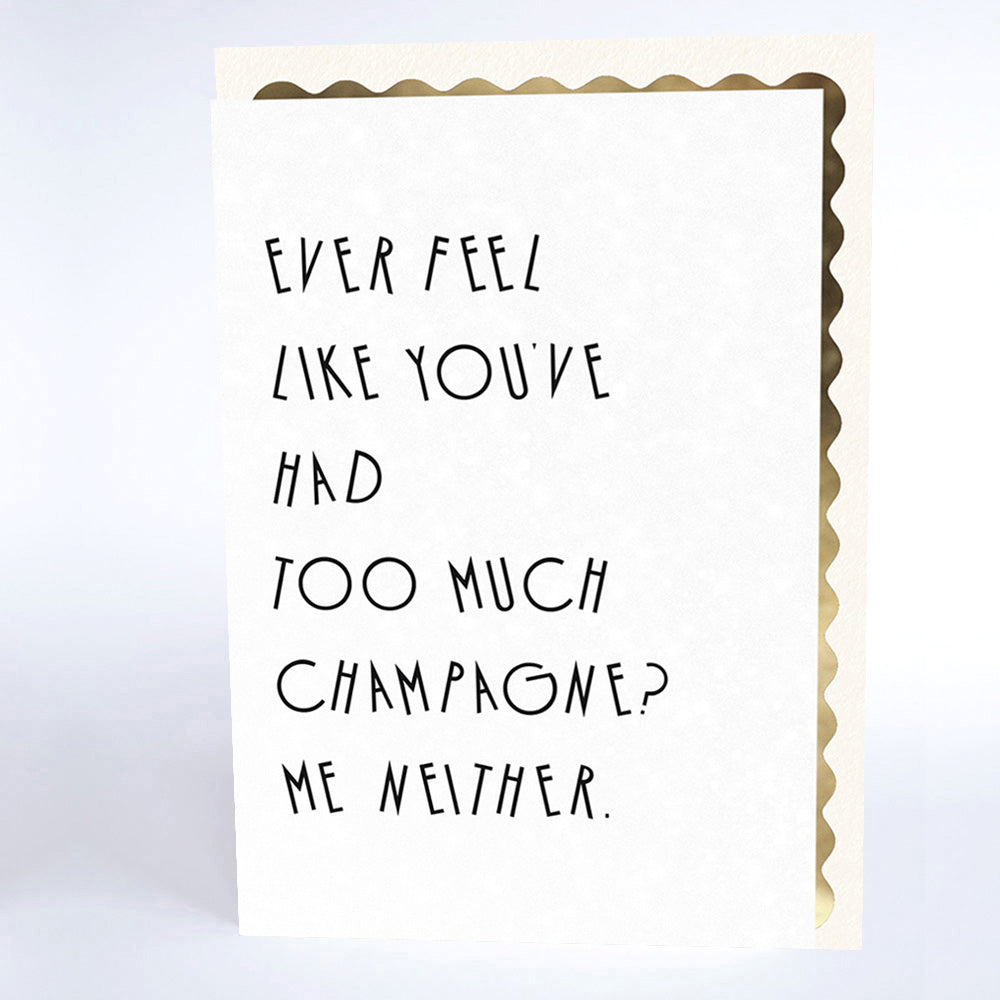 EVER FEEL
LIKE YOU'VE
HAD
TOO MUCH
CHAMPAGNE?
ME NEITHER.